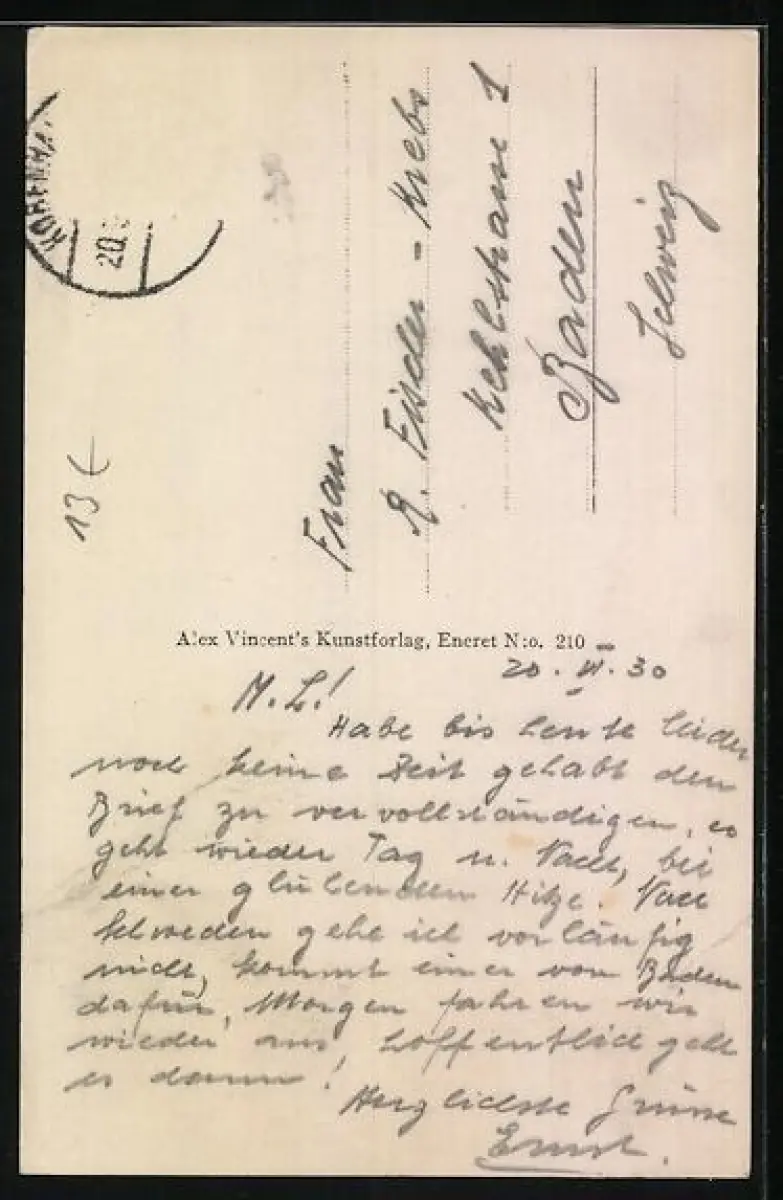 KØBENHA
20.
13 €
Frau
R. Fischer - Krebs
Kehlstrasse 1
Baden
Schweiz
Alex Vincent's Kunstforlag, Eneret N:o. 210
20. VI. 30
M. L.!
Habe bis heute leider
noch keine Zeit gehabt den
Brief zu vervollständigen, es
geht wieder Tag u. Nacht, bei
einer glühenden Hitze. Nach
Schweden gehe ich vorläufig
nicht, kommt einer von Baden
dafür, Morgen fahren wir
wieder aus, hoffentlich geht
es dann!
Herzlichste Grüsse
Ernst.